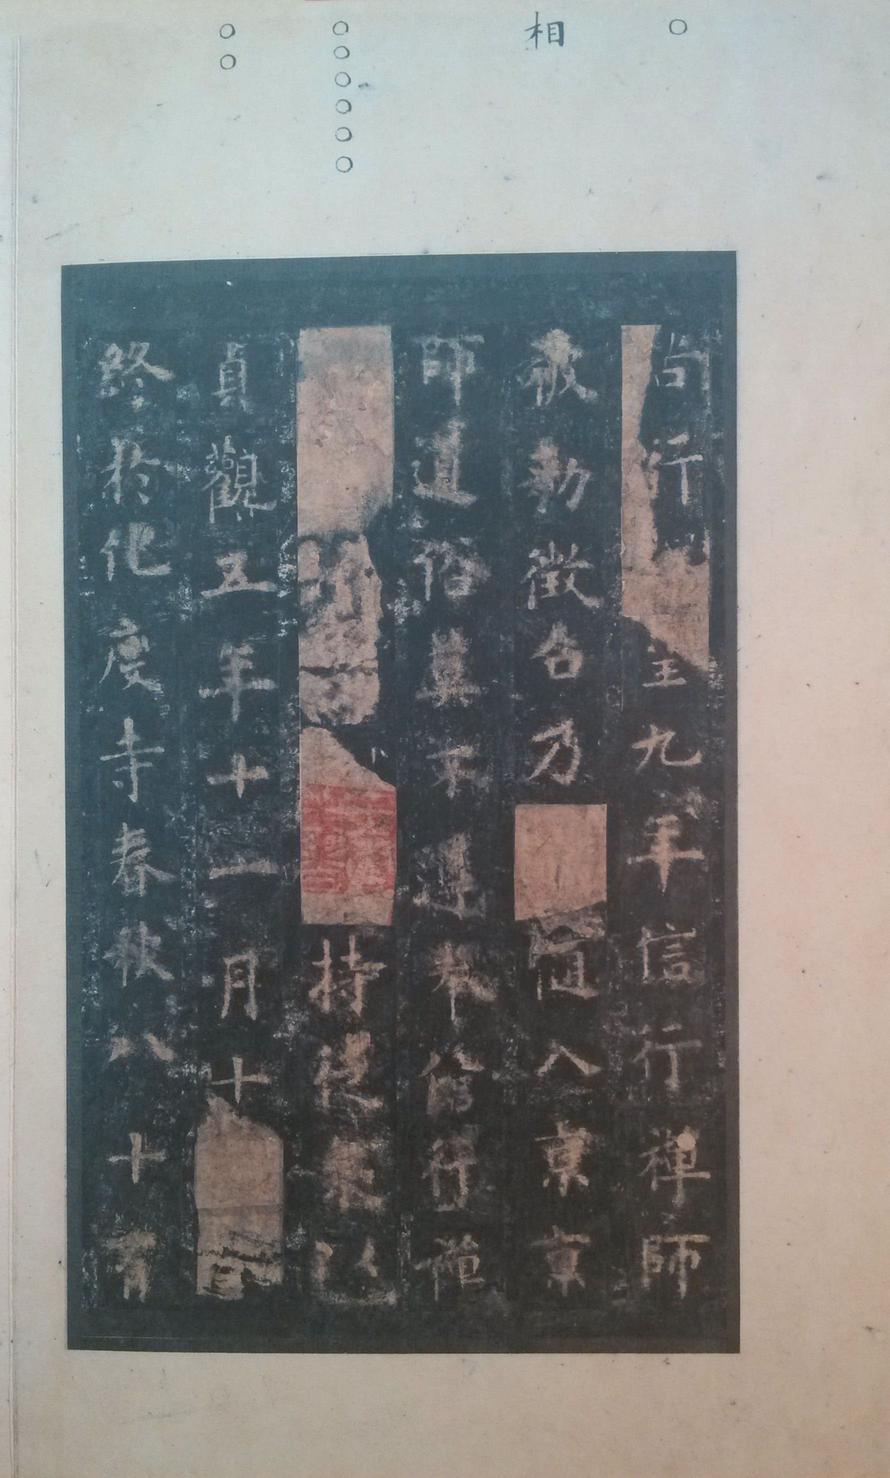 相
尚行至九年信行禪師
被勅徵召乃隨入京京
師道俗莫不遵奉信行禪
持徒衆以
貞觀五年十一月十
終於化度寺春秋八十有